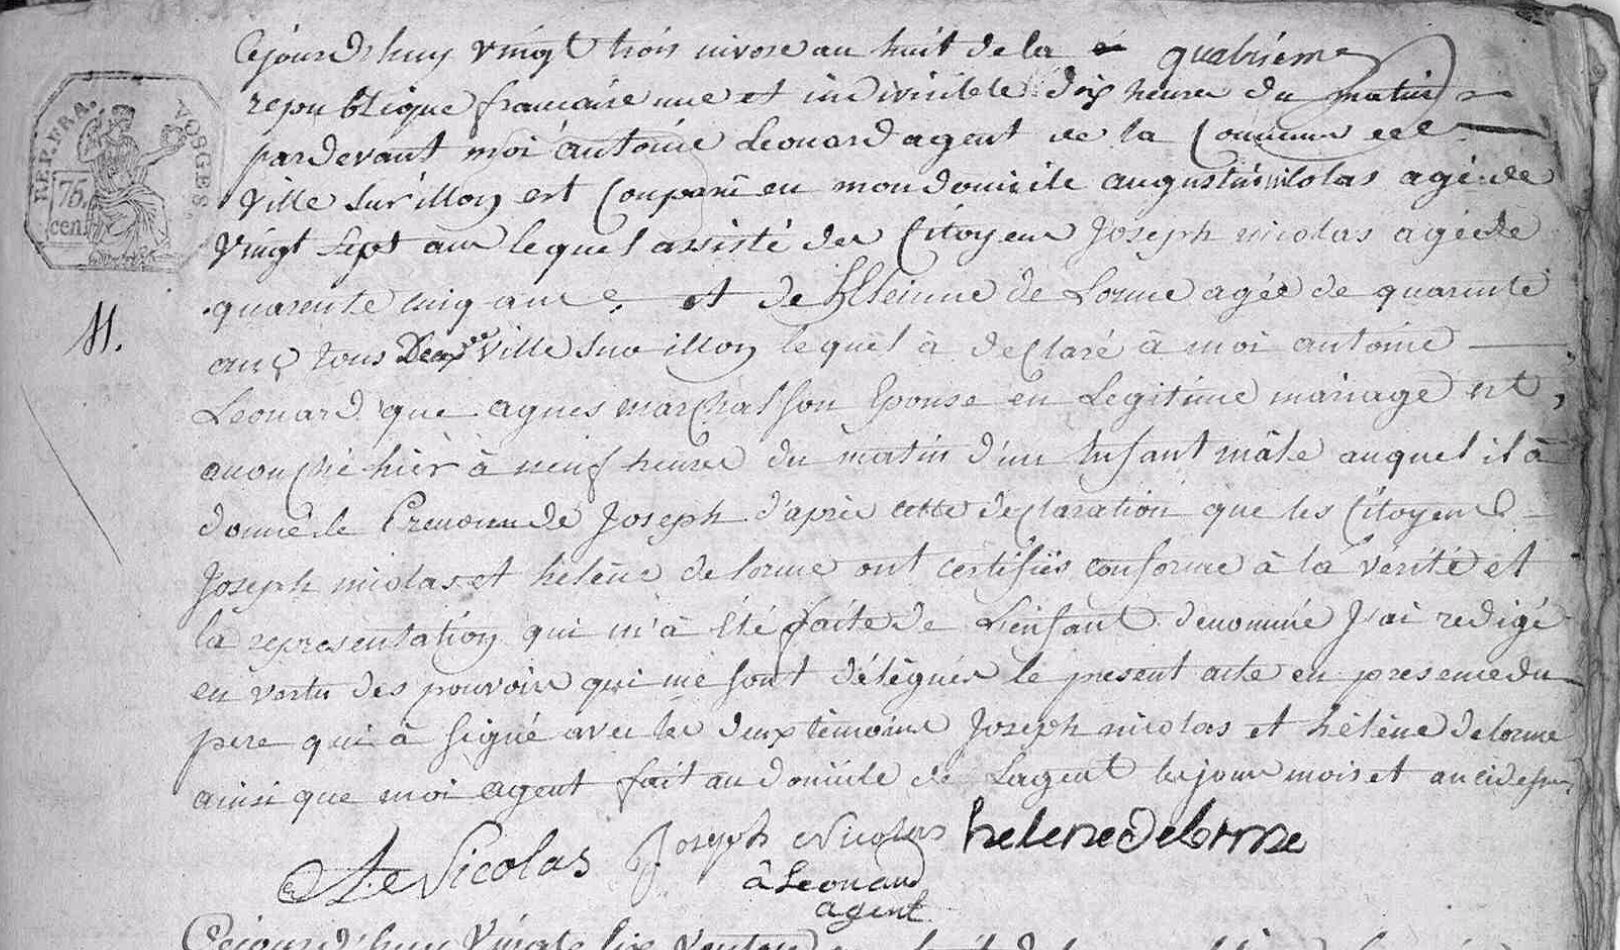 Cejourdhuy vingt trois nivose an huit de la quatriéme
republique francaise une et indivisible dix heures du matin
pardevant moi antoine Leonard agent de la Commune de
ville sur illon est Comparu en mon domicile augustin nicolas agé de
vingt sept ans lequel assisté des Citoyens Joseph nicolas agé de
quarente cinq ans et de hleinne de Lorme agée de quarente
ans tous Deux de ville sur illon lequel à declaré à moi antoine
Leonard que agnes marchal son Epouse en Legitime mariage est
acouché hièr à neuf heures du matin d'un Enfant mâle auquel il à
donné le Prenom de Joseph d'après cette declaration que les Citoyens
Joseph nicolas et héléne delorme ont certifiés conforme à la vérité et
la representation qui m'à été faite de L'enfant denommé J'ai redigé
en vertu des pouvoirs qui me sont délégués le present acte en presence du
pere qui à signé avec les deux témoins Joseph nicolas et héléne delorme
ainsi que moi agent fait au domicile de Lagent les jour mois et an cidessus
Nicolas Joseph Nicolas helene Delorme
à Leonard
agent
Cejourd'huy Vingt six ventose
REP. FRA.
VOSGES.
75.
cen.
11.